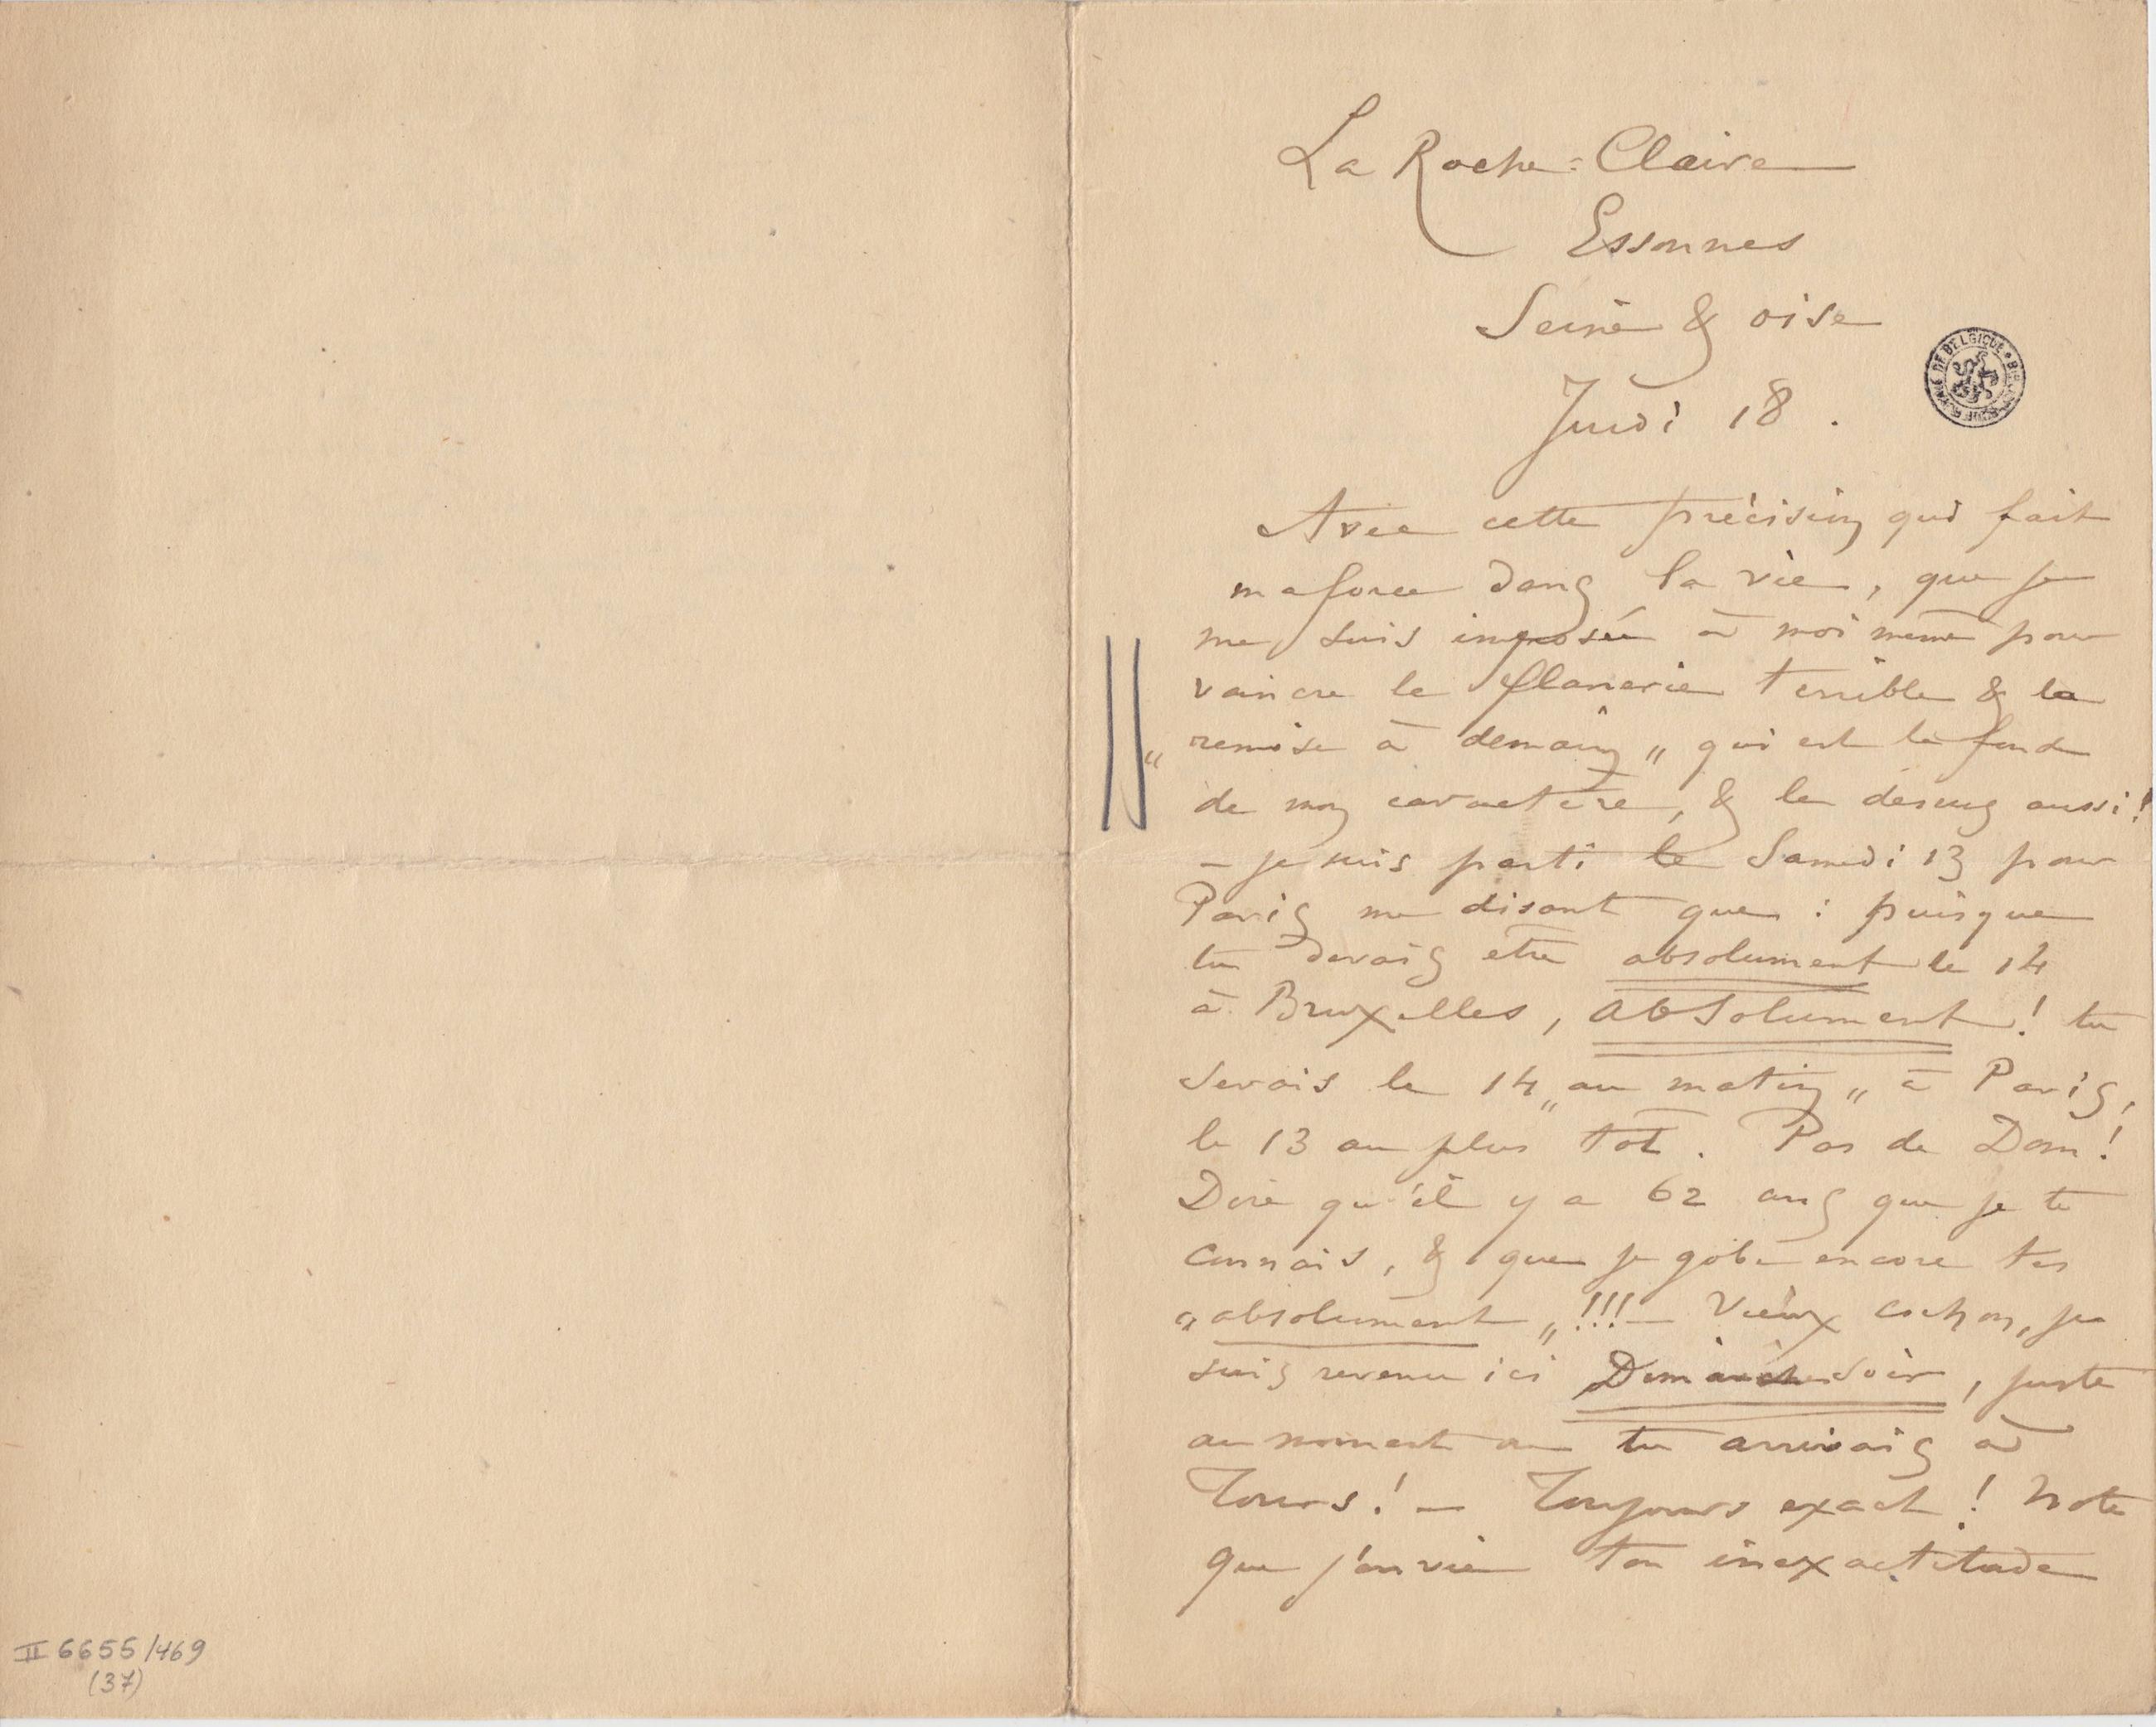 La Roche=Claire
Essonnes
Seine & oise
Jeudi 18.
BIBLIOTHÈQUE ROYALE DE BELGIQUE
Avec cette précision qui fait
ma force dans la vie, que je
me suis imposée à moi même pour
vaincre le flanerie terrible & la
„ remise à demain „ qui est le fond
de mon caractère, & le dessus aussi!
– je suis parti le Samedi 13 pour
Paris me disant que : puisque
tu devais etre absolument le 14
à Bruxelles, absolument! tu
serais le 14 „ au matin „ à Paris,
le 13 au plus tot. Pas de Dom!
Dire qu'il y a 62 ans que je te
connais, & que je gobe encore tes
„ absolument „!!! — Vieux cochon, je
suis revenu ici Dimanche soir, juste
au moment ou tu arrivais à
Tours! – Toujours exact! Note
que j'envie ton inexactitude
II 6655/469
(37)